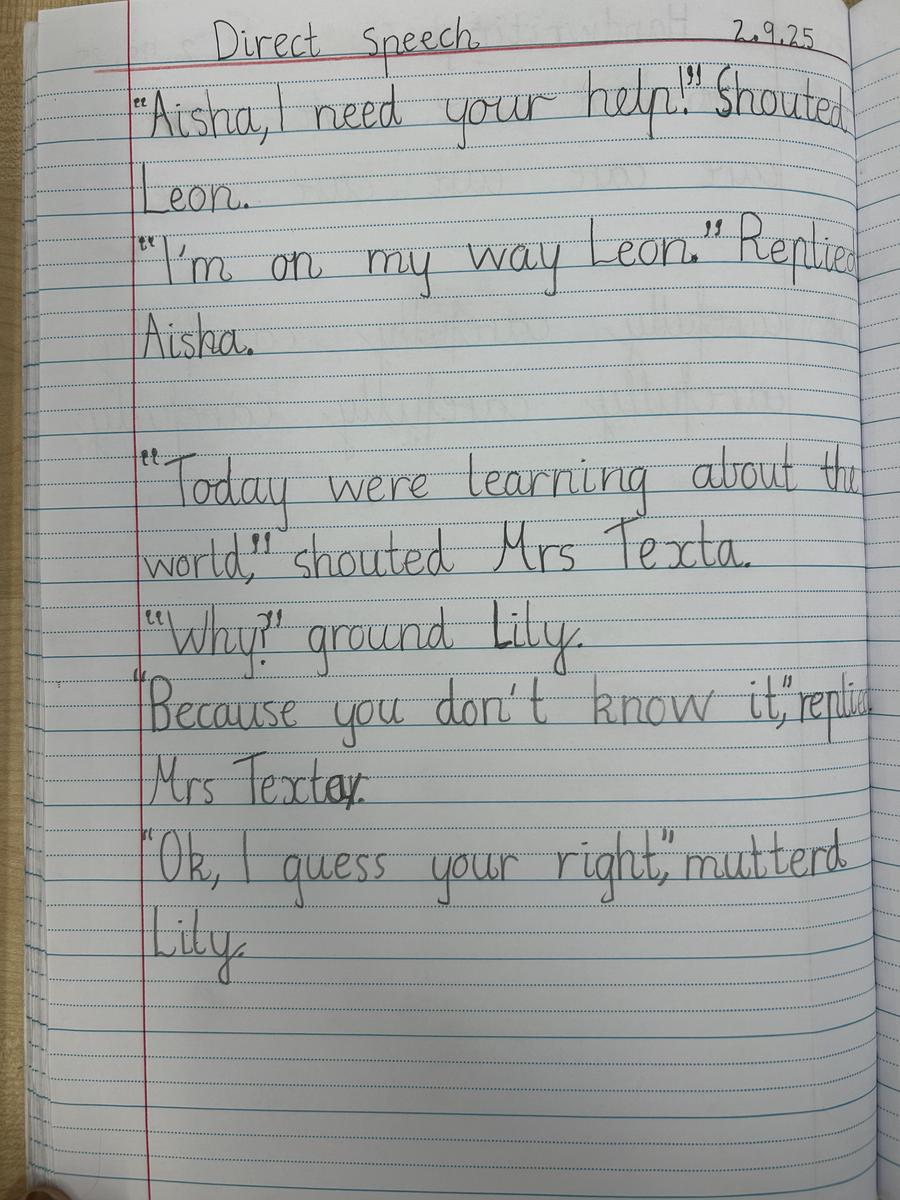 Direct Speech 2.9.25
"Aisha, I need your help!" Shouted
Leon.
"I'm on my way Leon." Replied
Aisha.
"Today were learning about the
world," shouted Mrs Texta.
"Why?" ground Lily.
"Because you don't know it," replied
Mrs Texta.
"Ok, I guess your right," mutterd
Lily.